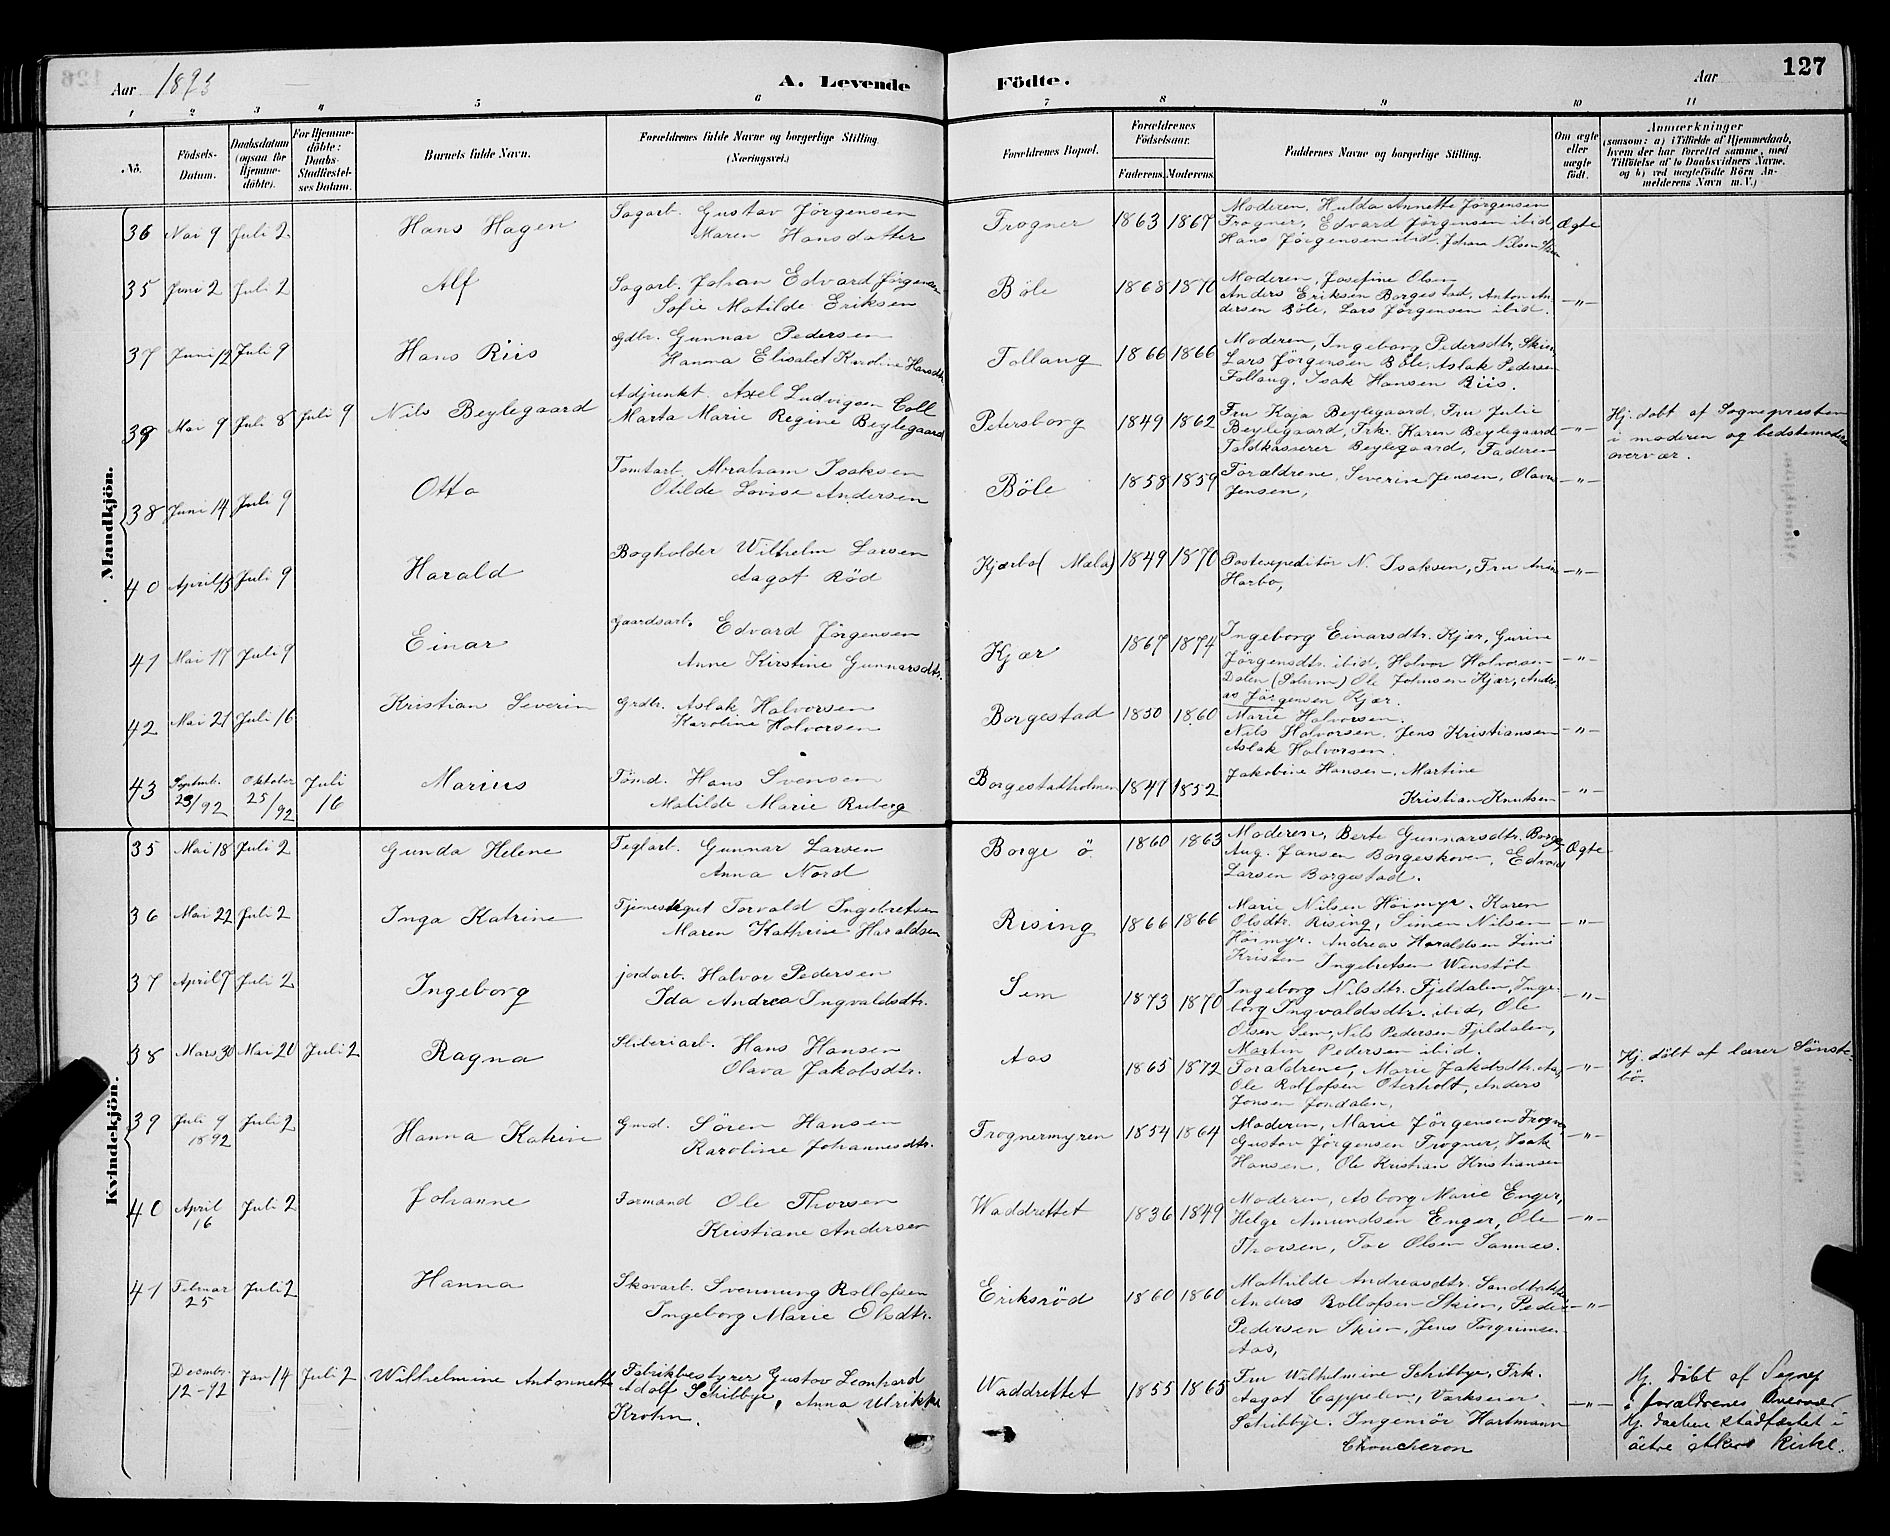 Aar 1893
A. Levende Födte.
Aar
127
1 2 3 4 5 6 7 8 9 10 11
No.
Födsels-Datum.
Daabsdatum (ogsaa for Hjemme-döbte).
For Hjemme-döbte: Daabs-Stadfæstelses Datum.
Barnets fulde Navn.
Forældrenes fulde Navne og borgerlige Stilling. (Næringsvei.)
Forældrenes Bopæl.
Forældrenes Födselsaar.
Faderens. Moderens.
Faddernes Navne og borgerlige Stilling.
Om ægte eller uægte födt.
Anmærkninger
(saasom: a) i Tilfælde af Hjemmedaab, hvem der har forrettet samme, med Tilföielse af to Daabsvidners Navne. og b) ved uægtefödte Börn Anmelderens Navn m. V.)
Mandkjön.
36 Mai 9 Juli 2 Hans Hagen Sagarb. Gustav Jörgensen
Maren Hansdatter Frogner 1863 1867 Moderen, Hulda Annette Jörgensen
Frogner, Edvard Jörgensen ibid, Ægte
Hans Jörgensen ibid, Johan Nilsen
35 Juni 2 Juli 2 Alf Sagarb. Johan Edvard Jörgensen
Sofie Matilde Eriksen Böle 1868 1870 Moderen, Josefine Olsen
Anders Eriksen Borgestad, Anton Andersen Böle, Lars Jörgensen ibid. —"—
37 Juni 12 Juli 9 Hans Riis Gdbr. Gunnar Pedersen
Hanna Elisabet Karoline Hansdtr. Follaug 1866 1866 Moderen, Ingeborg Pedersdtr. Skien
Lars Jörgensen Böle, Aslak Pedersen
Follaug, Isak Hansen Riis.
39 Mai 9 Juli 8 Juli 9 Nils Beylegaard Adjunkt. Axel Ludvigsen Coll
Marta Marie Regine Beylegaard Petersborg 1849 1862 Fru Kaja Beylegaard, Fru Julie
Beylegaard, Frk. Karen Beylegaard —"—
Toldkasserer Beylegaard, Faderen
Hj. döbt af Sognepresten
i moderen og bedstemoders
overvær.
38 Juni 14 Juli 9 Otto Tomtarb. Abraham Isaksen
Otilde Lovise Andersen Böle 1858 1859 Forældrene, Severine Jensen, Olava —"—
Jensen,
40 April 15 Juli 9 Harald Bogholder Wilhelm Larsen
Aagot Röd Kjærbo (Mæla) 1849 1870 Postexpeditör N. Isaksen, Fru Anna —"—
Harbo,
41 Mai 17 Juli 9 Einar Gaardsarb. Edvard Jörgensen
Anne Kirstine Gunnarsdtr. Kjær 1867 1874 Ingeborg Einarsdtr. Kjær, Gurine
Jörgensdtr. ibid, Halvor Halvorsen —"—
Dalen (Solum) Ole Johnsen Kjær, Andreas Jörgensen Kjær.
42 Mai 21 Juli 16 Kristian Severin Grdbr. Aslak Halvorsen
Karoline Halvorsen Borgestad 1850 1860 Marie Halvorsen.
Nils Halvorsen, Jens Kristiansen —"—
Aslak Halvorsen.
43 Septemb. 23/92 Oktober 25/92 Juli 16 Marius Tömd. Hans Svensen
Matilde Marie Ruberg Borgestadholmen 1847 1852 Jakobine Hansen, Martine
Kristian Knutsen —"—
Kvindekjön.
35 Mai 18 Juli 2 Gunda Helene Teglarb. Gunnar Larsen
Anna Nord Borge ö. 1860 1863 Moderen, Berte Gunnarsdtr. Borge,
Aug. Jansen Borgeskoven, Edvard Ægte
Larsen Borgestad.
36 Mai 22 Juli 2 Inga Katrine Tjenestegut Torvald Ingebretsen
Maren Kathrine Haraldsen Rising 1866 1866 Marie Nilsen Höimyr, Karen
Olsdtr. Rising, Simen Nilsen —"—
Höimyr, Andreas Haraldsen
Kristen Ingebretsen Wenstöb
37 April 7 Juli 2 Ingeborg jordarb. Halvor Pedersen
Ida Andrea Ingvaldsdtr. Sem 1873 1870 Ingeborg Nilsdtr. Fjeldalen, Ingeborg Ingvaldsdtr. ibid, Ole —"—
Olsen Sem, Nils Pedersen Fjeldalen,
Martin Pedersen ibid.
38 Mars 30 Mai 20 Juli 2 Ragna Sliberiarb. Hans Hansen
Olava Jakobsdtr. Aas 1865 1872 Forældrene, Marie Jakobsdtr. Aas, —"—
Ole Rollofsen Oterholt, Anders
Jonsen Jondalen,
Hj. döbt af lærer Sönstebö.
39 Juli 9 1892 Juli 2 Hanna Katrine Gmd. Sören Hansen
Karoline Johannesdtr. Frognermyren 1854 1864 Moderen, Marie Jörgensen Frogner,
Gustav Jörgensen Frogner, Isak —"—
Hansen, Ole Kristian Kristiansen
40 April 16 Juli 2 Johanne Formand Ole Thorsen
Kristiane Andersen Waddrettet 1836 1849 Moderen, Aaborg Marie Enger,
Helge Amundsen Enger, Ole —"—
Thorsen, Tor Olsen Sannes.
41 Februar 25 Juli 2 Hanna Skovarb. Svennung Rollofsen
Ingeborg Marie Olsdtr. Eriksröd 1860 1860 Mathilde Andreasdtr.
Anders Rollofsen Skien, Peder —"—
Pedersen Skien, Jens Torgrimsen
Aas,
Decembr. 12-92 Jan 14 Juli 2 Wilhelmine Antonnette Fabrikbestyrer Gustav Leonhard
Adolf Schibbye, Anna Ulrikke
Krohn. Waddrettet 1855 1865 Fru Wilhelmine Schibbye, Frk.
Aagot Cappelen, Værkseier —"—
Schibbye. Ingeniör Hartmann
Choucheron
Hj. döbt af Sognep
i forældrenes Overvær
Hj. daaben stadfæstet i
kirke.